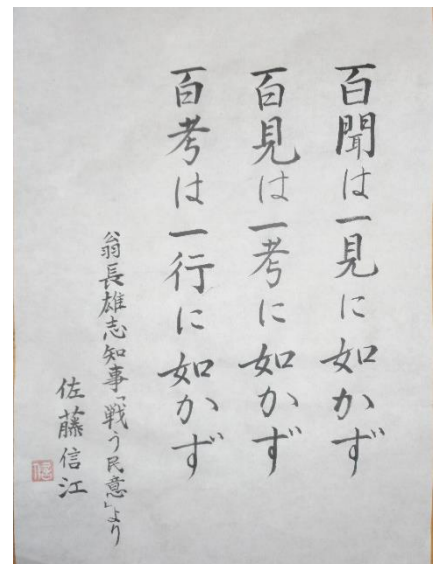 百聞は一見に如かず
百見は一考に如かず
百考は一行に如かず
翁長雄志知事「戦う民意」より
佐藤信江
信